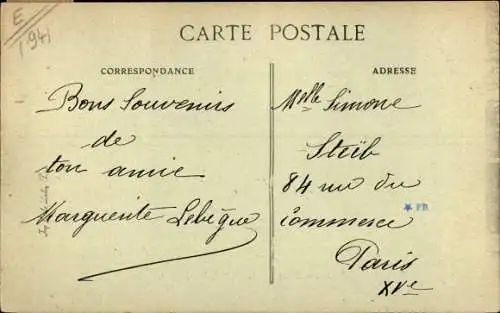 E
1941
CARTE POSTALE
CORRESPONDANCE
Bons Souvenirs
de
ton amie
Marguerite Lebègue
ADRESSE
Melle Simone
Steib
84 rue du
Commerce
Paris
XVe
★ FR